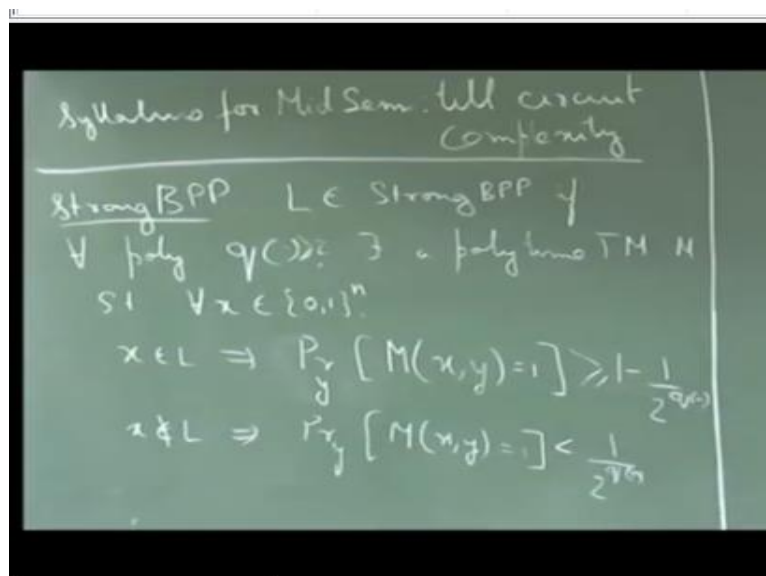 Syllabus for Mid Sem. till circuit
complexity
Strong BPP L ∈ Strong BPP if
∀ poly q() ≥ 2 ∃ a poly time TM M
st ∀ x ∈ {0,1}ⁿ
x ∈ L ⇒ Pr_y [M(x,y)=1] ≥ 1 - 1/2^q(n)
x ∉ L ⇒ Pr_y [M(x,y)=1] < 1/2^q(n)